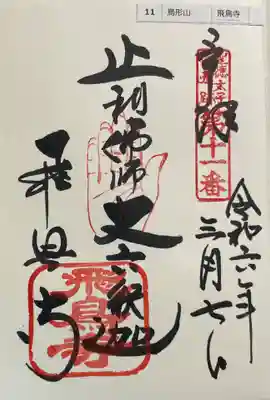 11 鳥形山 飛鳥寺
奉拝
聖徳太子
第十一番
令和六年
三月七日
止利佛師 丈六釈迦
飛鳥寺